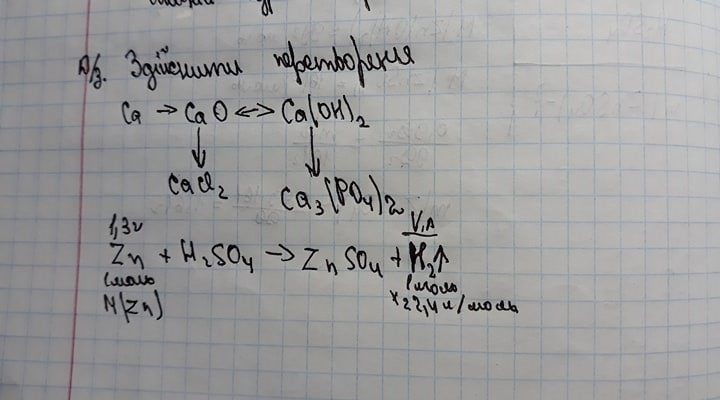 Д/з. Здійснити перетворення
Ca → CaO ↔ Ca(OH)₂
↓ ↓
CaCl₂ Ca₃(PO₄)₂
1,3г V,л
Zn + H₂SO₄ → ZnSO₄ + H₂↑
1моль 1моль
M(Zn) ×22,4л/моль